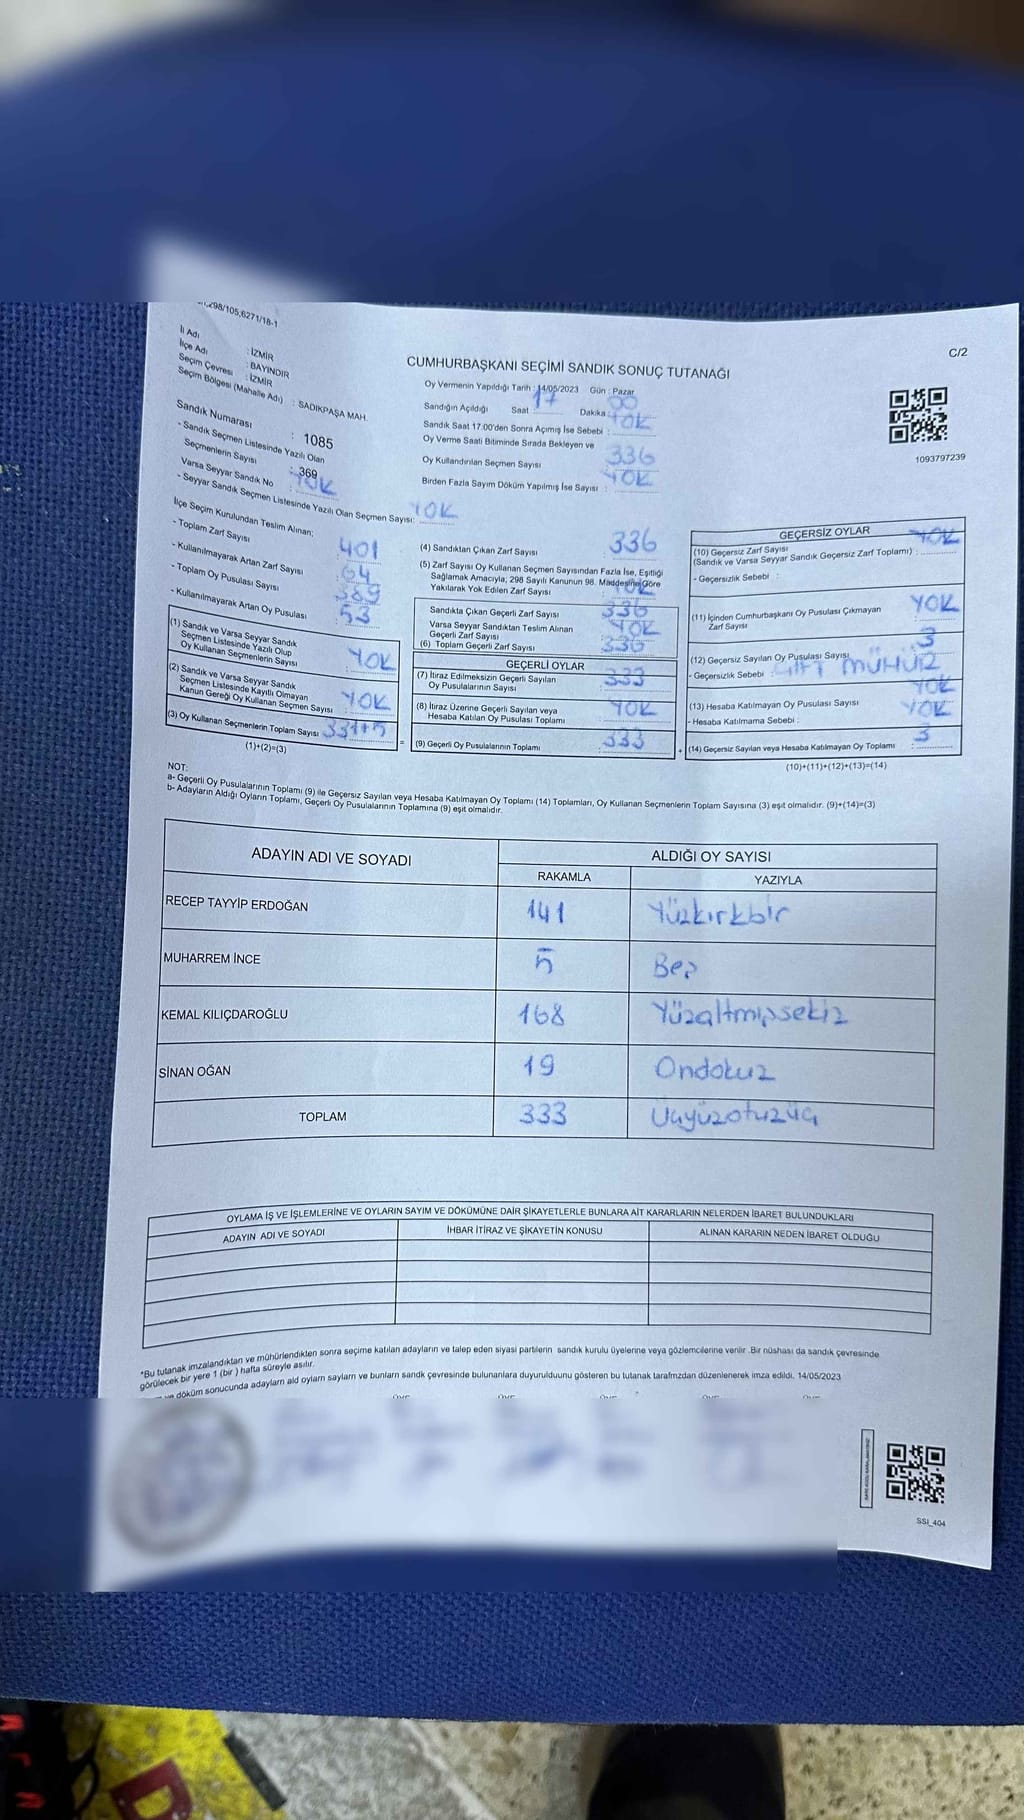 298/105,6271/18-1
C/2
İl Adı : İZMİR
İlçe Adı : BAYINDIR
Seçim Çevresi : İZMİR
Seçim Bölgesi (Mahalle Adı) : SADIKPAŞA MAH.
Sandık Numarası : 1085
- Sandık Seçmen Listesinde Yazılı Olan
Seçmenlerin Sayısı : 369
Varsa Seyyar Sandık No : YOK
- Seyyar Sandık Seçmen Listesinde Yazılı Olan Seçmen Sayısı: YOK
CUMHURBAŞKANI SEÇİMİ SANDIK SONUÇ TUTANAĞI
Oy Vermenin Yapıldığı Tarih : 14/05/2023 Gün : Pazar
Sandığın Açıldığı Saat 17 Dakika 00
Sandık Saat 17.00'den Sonra Açımış İse Sebebi : YOK
Oy Verme Saati Bitiminde Sırada Bekleyen ve
Oy Kullandırılan Seçmen Sayısı 336
Birden Fazla Sayım Döküm Yapılmış İse Sayısı : YOK
1093797239
İlçe Seçim Kurulundan Teslim Alınan;
- Toplam Zarf Sayısı : 401
- Kullanılmayarak Artan Zarf Sayısı : 64
- Toplam Oy Pusulası Sayısı : 389
- Kullanılmayarak Artan Oy Pusulası : 53
(1) Sandık ve Varsa Seyyar Sandık
Seçmen Listesinde Yazılı Olup
Oy Kullanan Seçmenlerin Sayısı YOK
(2) Sandık ve Varsa Seyyar Sandık
Seçmen Listesinde Kayıtlı Olmayan
Kanun Gereği Oy Kullanan Seçmen Sayısı YOK
(3) Oy Kullanan Seçmenlerin Toplam Sayısı 331+5
(1)+(2)=(3)
(4) Sandıktan Çıkan Zarf Sayısı 336
(5) Zarf Sayısı Oy Kullanan Seçmen Sayısından Fazla İse, Eşitliği
Sağlamak Amacıyla; 298 Sayılı Kanunun 98. Maddesine Göre
Yakılarak Yok Edilen Zarf Sayısı YOK
Sandıkta Çıkan Geçerli Zarf Sayısı 336
Varsa Seyyar Sandıktan Teslim Alınan
Geçerli Zarf Sayısı YOK
(6) Toplam Geçerli Zarf Sayısı 336
GEÇERLİ OYLAR
(7) İtiraz Edilmeksizin Geçerli Sayılan
Oy Pusulalarının Sayısı 333
(8) İtiraz Üzerine Geçerli Sayılan veya
Hesaba Katılan Oy Pusulası Toplamı YOK
(9) Geçerli Oy Pusulalarının Toplamı 333
GEÇERSİZ OYLAR
(10) Geçersiz Zarf Sayısı YOK
(Sandık ve Varsa Seyyar Sandık Geçersiz Zarf Toplamı) :
- Geçersizlik Sebebi :
(11) İçinden Cumhurbaşkanı Oy Pusulası Çıkmayan
Zarf Sayısı YOK
(12) Geçersiz Sayılan Oy Pusulası Sayısı 3
- Geçersizlik Sebebi : ÇİFT MÜHÜR
(13) Hesaba Katılmayan Oy Pusulası Sayısı YOK
- Hesaba Katılmama Sebebi : YOK
(14) Geçersiz Sayılan veya Hesaba Katılmayan Oy Toplamı 3
(10)+(11)+(12)+(13)=(14)
NOT:
a- Geçerli Oy Pusulalarının Toplamı (9) ile Geçersiz Sayılan veya Hesaba Katılmayan Oy Toplamı (14) Toplamları, Oy Kullanan Seçmenlerin Toplam Sayısına (3) eşit olmalıdır. (9)+(14)=(3)
b- Adayların Aldığı Oyların Toplamı, Geçerli Oy Pusulalarının Toplamına (9) eşit olmalıdır.
ADAYIN ADI VE SOYADI ALDIĞI OY SAYISI
RAKAMLA YAZIYLA
RECEP TAYYİP ERDOĞAN 141 Yüzkırkbir
MUHARREM İNCE 5 Beş
KEMAL KILIÇDAROĞLU 168 Yüzaltmışsekiz
SİNAN OĞAN 19 Ondokuz
TOPLAM 333 Üçyüzotuzüç
OYLAMA İŞ VE İŞLEMLERİNE VE OYLARIN SAYIM VE DÖKÜMÜNE DAİR ŞİKAYETLERLE BUNLARA AİT KARARLARIN NELERDEN İBARET BULUNDUKLARI
ADAYIN ADI VE SOYADI İHBAR İTİRAZ VE ŞİKAYETİN KONUSU ALINAN KARARIN NEDEN İBARET OLDUĞU
*Bu tutanak imzalandıktan ve mühürlendikten sonra seçime katılan adayların ve talep eden siyasi partilerin sandık kurulu üyelerine veya gözlemcilerine verilir .Bir nüshası da sandık çevresinde
görülecek bir yere 1 (bir ) hafta süreyle asılır.
ve döküm sonucunda adayların ald oyların sayların ve bunların sandk çevresinde bulunanlara duyurulduunu gösteren bu tutanak tarafmzdan düzenlenerek imza edildi. 14/05/2023
SSI_404